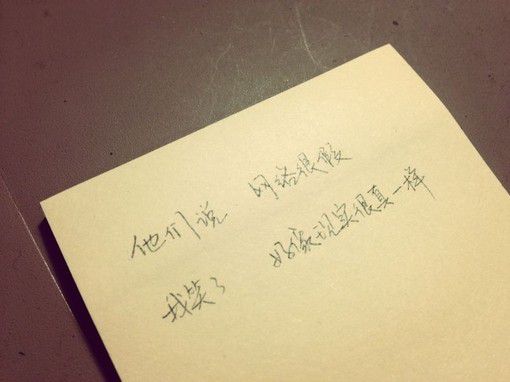 他们说 网络很假
我笑了 好像现实很真一样